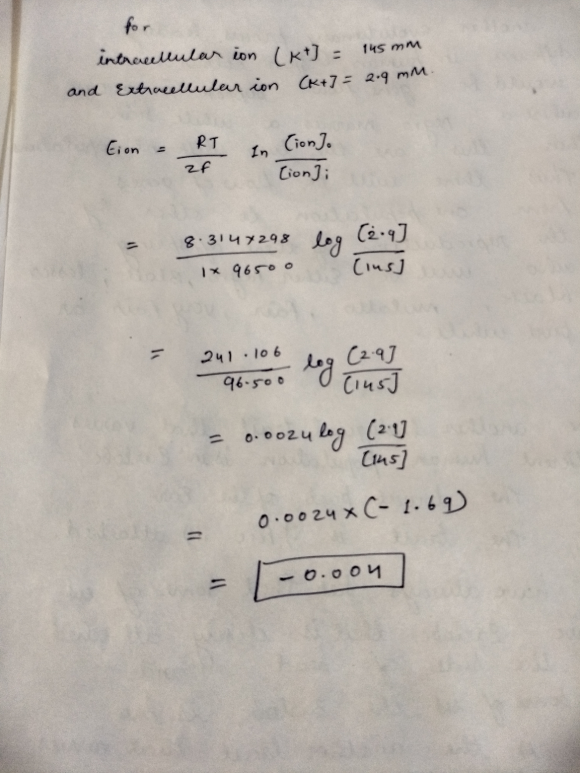 for
intracellular ion [K+] = 145 mM
and Extracellular ion [K+] = 2.9 mM.
Eion = RT/ZF In [ion]o/[ion]i
= 8.314×298/1×96500 log [2.9]/[145]
= 241.106/96.500 log [2.9]/[145]
= 0.0024 log [2.9]/[145]
= 0.0024×(-1.69)
= -0.004